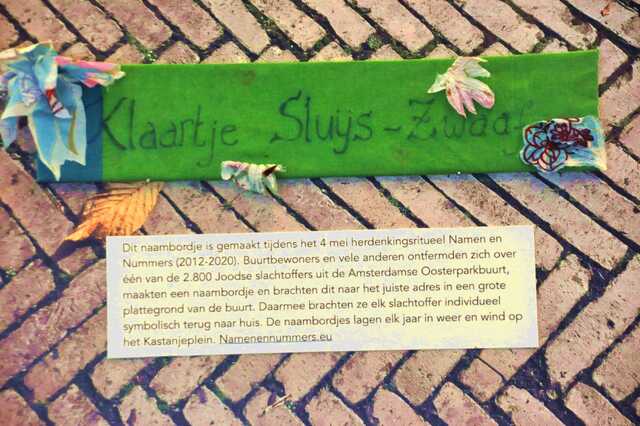 Klaartje Sluijs - Zwaaf
Dit naambordje is gemaakt tijdens het 4 mei herdenkingsritueel Namen en
Nummers (2012-2020). Buurtbewoners en vele anderen ontfermden zich over
één van de 2.800 Joodse slachtoffers uit de Amsterdamse Oosterparkbuurt,
maakten een naambordje en brachten dit naar het juiste adres in een grote
plattegrond van de buurt. Daarmee brachten ze elk slachtoffer individueel
symbolisch terug naar huis. De naambordjes lagen elk jaar in weer en wind op
het Kastanjeplein. Namenennummers.eu